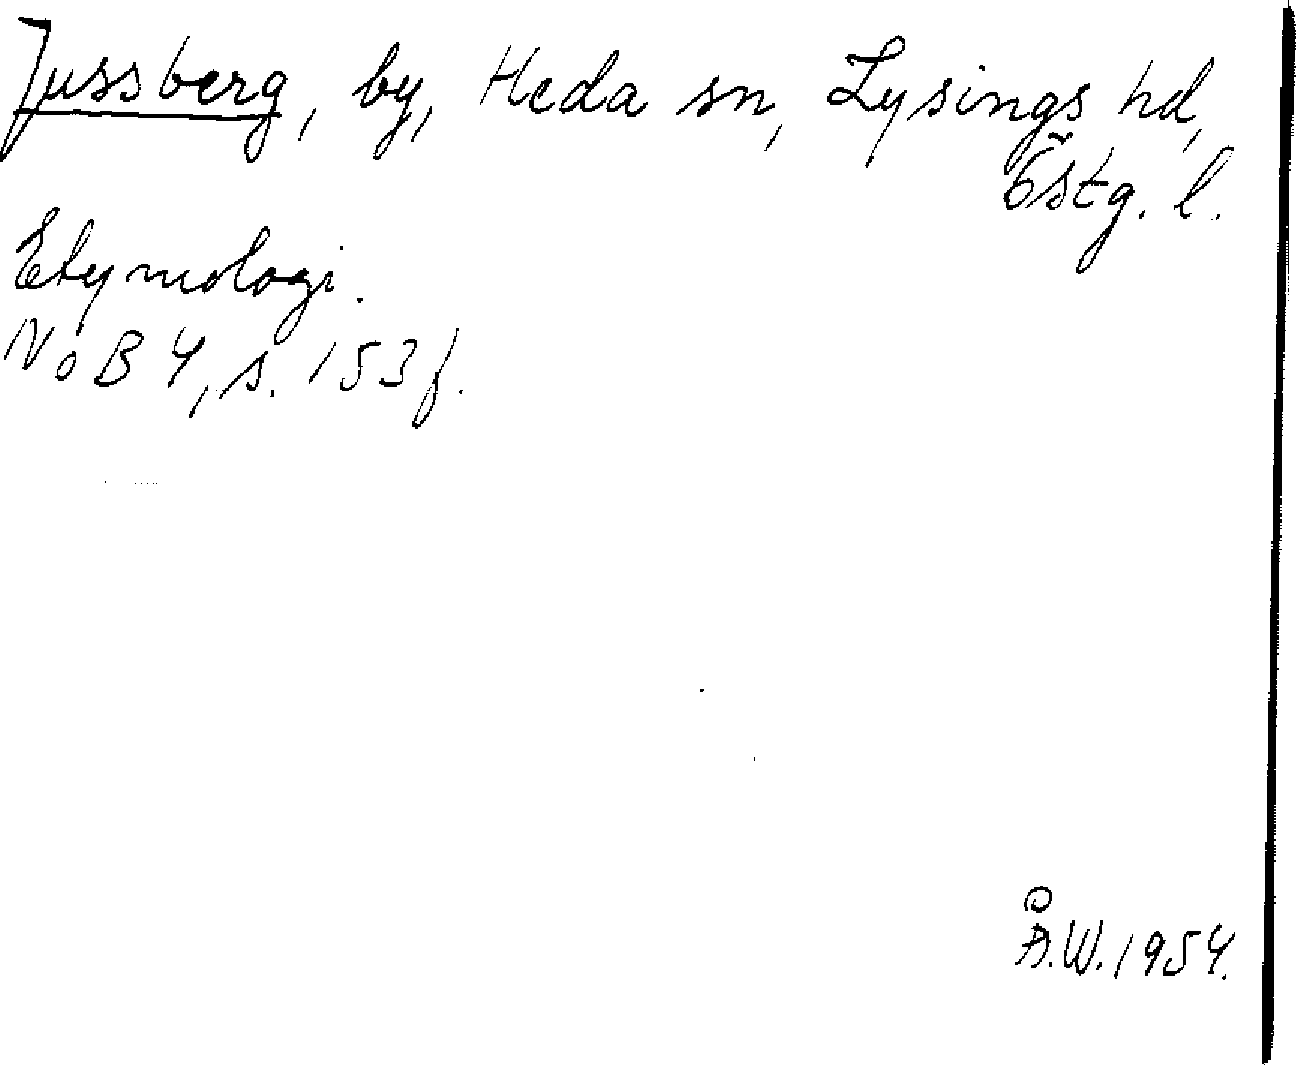 Jussberg, by, Heda sn, Lysings hd,
Östg. l.
Etymologi.
NoB 4, s. 153 f.
Å.W. 1954.